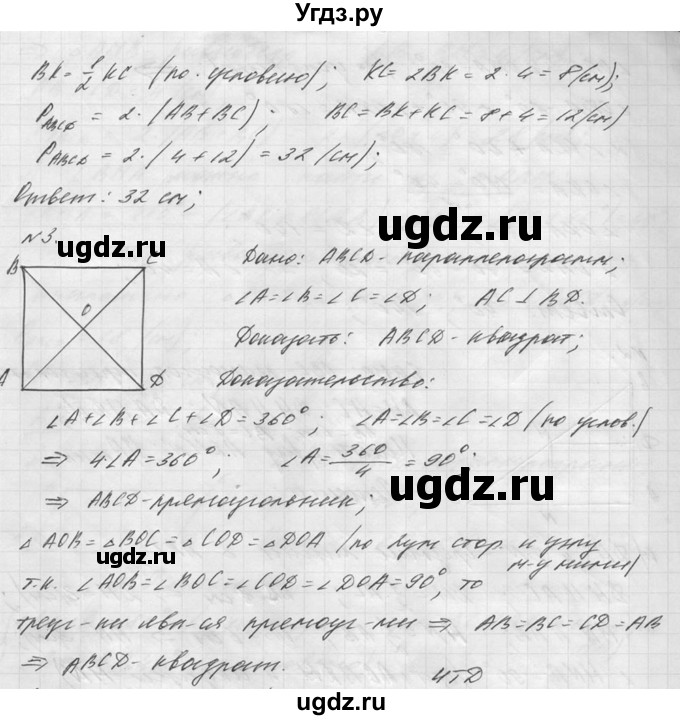 Угдз.ру
BK = 1/2 KC (по условию); KC = 2BK = 2 · 4 = 8 (см);
P_ABCD = 2 · (AB + BC); BC = BK + KC = 8 + 4 = 12 (см)
P_ABCD = 2 · (4 + 12) = 32 (см);
Ответ: 32 см;
ugdz.ru
№3.
ugdz.ru
B C
O
A D
Дано: ABCD - параллелограмм;
∠A = ∠B = ∠C = ∠D; AC ⊥ BD.
Доказать: ABCD - квадрат;
Доказательство:
∠A + ∠B + ∠C + ∠D = 360°; ∠A = ∠B = ∠C = ∠D (по услов.)
⇒ 4∠A = 360°; ∠A = 360/4 = 90°
⇒ ABCD - прямоугольник;
ugdz.ru
△AOB = △BOC = △COD = △DOA (по двум стор. и углу
м-у ними)
ugdz.ru
т.к. ∠AOB = ∠BOC = ∠COD = ∠DOA = 90°, то
треуг-ки явл-ся прямоуг-ми ⇒ AB = BC = CD = AB
⇒ ABCD - квадрат.
ЧТД
ugdz.ru
ugdz.ru